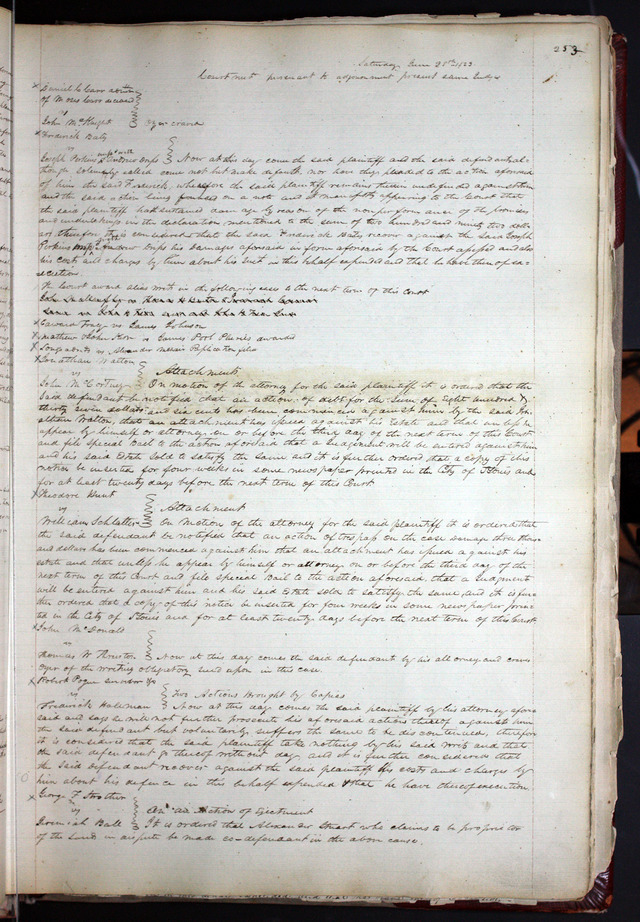 253
Saturday June 28th 1823
Court met pursuant to adjournment present same Judges
Daniel C Carr admr
of Moses Carr deceased
vs
John McKnight Oyer craved
Frederick Bates
vs
Joseph Perkins Now at this day come the said plaintiff and the said defendant al-
though solemnly called come not but make default, nor have they pleaded to the action aforesaid
of him the said Frederick, wherefore the said plaintiff remains therein undefended against them
and the said action being founded on a note and it manifestly appearing to the Court that
the said plaintiff hath sustained damage by reason of the nonperformance of the promises
and undertakings in the declaration mentioned to the sum of two hundred and ninety two doll-
ars. therefore it is considered that the said Frederick Bates recover against the said Joseph
Perkins his damages aforesaid in form aforesaid by the Court assessed and also
his costs and charges by him about his suit in this behalf expended and that he have thereof ex-
ecution.
The Court award alias writs in the following cases to the next term of this Court
vs James Johnson
vs James Pool Pluries awarded
vs Alexander Replication filed
Jonathan Walton
vs Attachment
John McCartney On motion of the attorney for the said plaintiff it is ordered that the
said defendant be notified that an action of debt for the sum of eight hundred &
thirty seven dollars and six cents has been commenced against him by the said Jon-
athan Walton, that an attachment has issued against his Estate and that unless he
appear by himself or attorney on or before the third day of the next term of this Court
and file special Bail to the action aforesaid that a Judgment will be entered against him
and his said Estate sold to satisfy the same and it is further ordered that a copy of this
notice be inserted for four weeks in some newspaper printed in the City of St Louis and
for at least twenty days before the next term of this Court
Theodore Hunt
vs Attachment
William Schlatter On motion of the attorney for the said plaintiff it is ordered that
the said defendant be notified that an action of trespass on the case Damage three thous-
and dollars has been commenced against him that an attachment has issued against his
estate and that unless he appear by himself or attorney on or before the third day of the
next term of this Court and file special Bail to the action aforesaid. that a Judgment
will be entered against him and his said Estate sold to satisfy the same, and it is fur-
ther ordered that a copy of this notice be inserted for four weeks in some newspaper prin-
ted in the City of St Louis and for at least twenty days before the next term of this Court
John McDonald
vs
Thomas W Thruston Now at this day comes the said defendant by his attorney and craves
oyer of the writing obligatory sued upon in this case.
Robert Pogue
vs Two Actions brought by Capias
Frederick Hateman Now at this day comes the said plaintiff by his attorney afore-
said and says he will not further prosecute his aforesaid actions thereof against him
the said defendant but voluntarily suffers the same to be discontinued, therefore
it is considered that the said plaintiff take nothing by his said writs and that
the said defendant go thereof without day and it is further considered that
the said defendant recover against the said plaintiff his costs and charges by
him about his defence in this behalf expended & that he have thereof execution
George F Strother
vs An Action of Ejectment
Jeremiah Ball It is ordered that Alexander Stuart who claims to be proprietor
of the land in dispute be made co-defendant in the above cause.